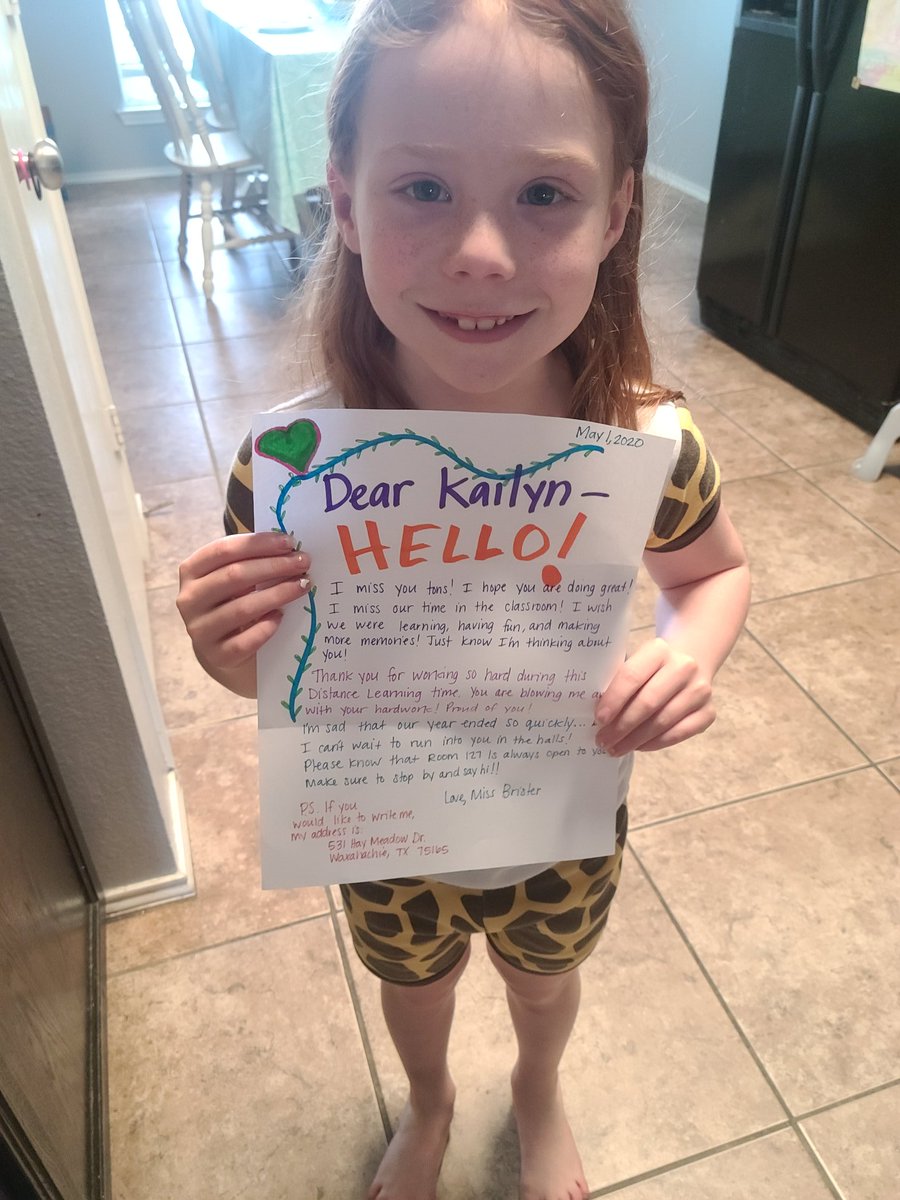 May 1, 2020
Dear Kailyn –
HELLO!
I miss you tons! I hope you are doing great!
I miss our time in the classroom! I wish
we were learning, having fun, and making
more memories! Just know I'm thinking about
you!
Thank you for working so hard during this
Distance Learning time. You are blowing me
with your hardwork! Proud of you!
I'm sad that our year ended so quickly...
I can't wait to run into you in the halls!
Please know that Room 127 is always open to
Make sure to stop by and say hi!!
Love, Miss Brister
P.S. If you
would like to write me,
my address is:
531 Hay Meadow Dr.
Waxahachie, TX 75165